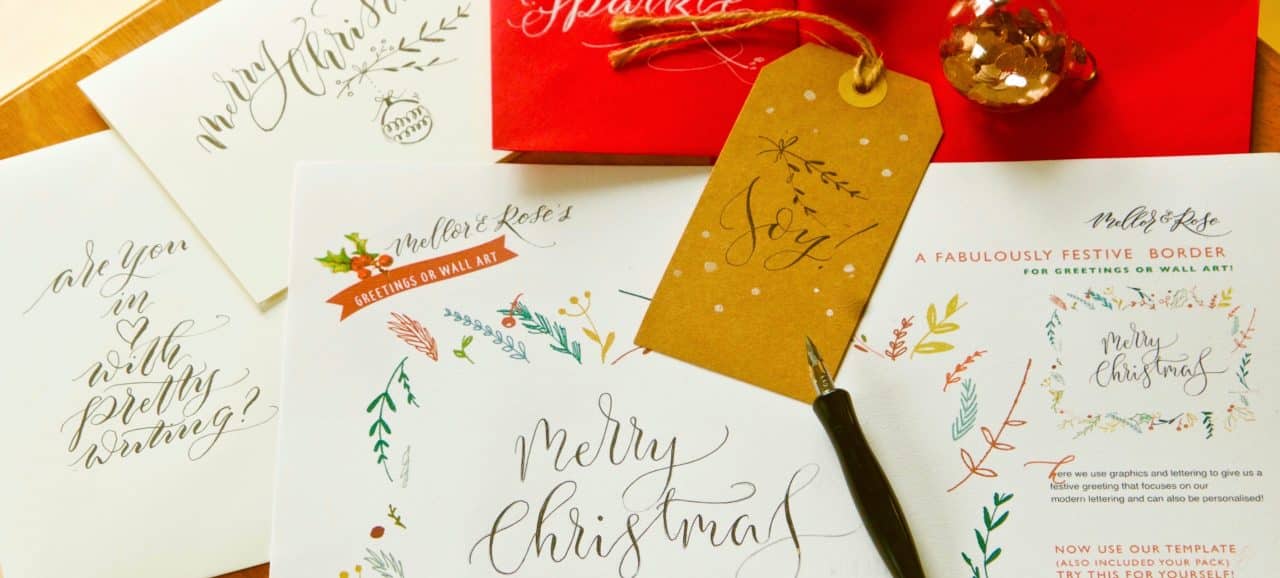 Sparkle
Merry Christ
are you
in
with
pretty
writing?
Mellor & Rose's
GREETINGS OR WALL ART
Merry
Christmas
Joy!
Mellor & Rose
A FABULOUSLY FESTIVE BORDER
FOR GREETINGS OR WALL ART!
Merry
Christmas
here we use graphics and lettering to give us a
festive greeting that focuses on our
modern lettering and can also be personalised!
NOW USE OUR TEMPLATE
(ALSO INCLUDED YOUR PACK)
TRY THIS FOR YOURSELF!